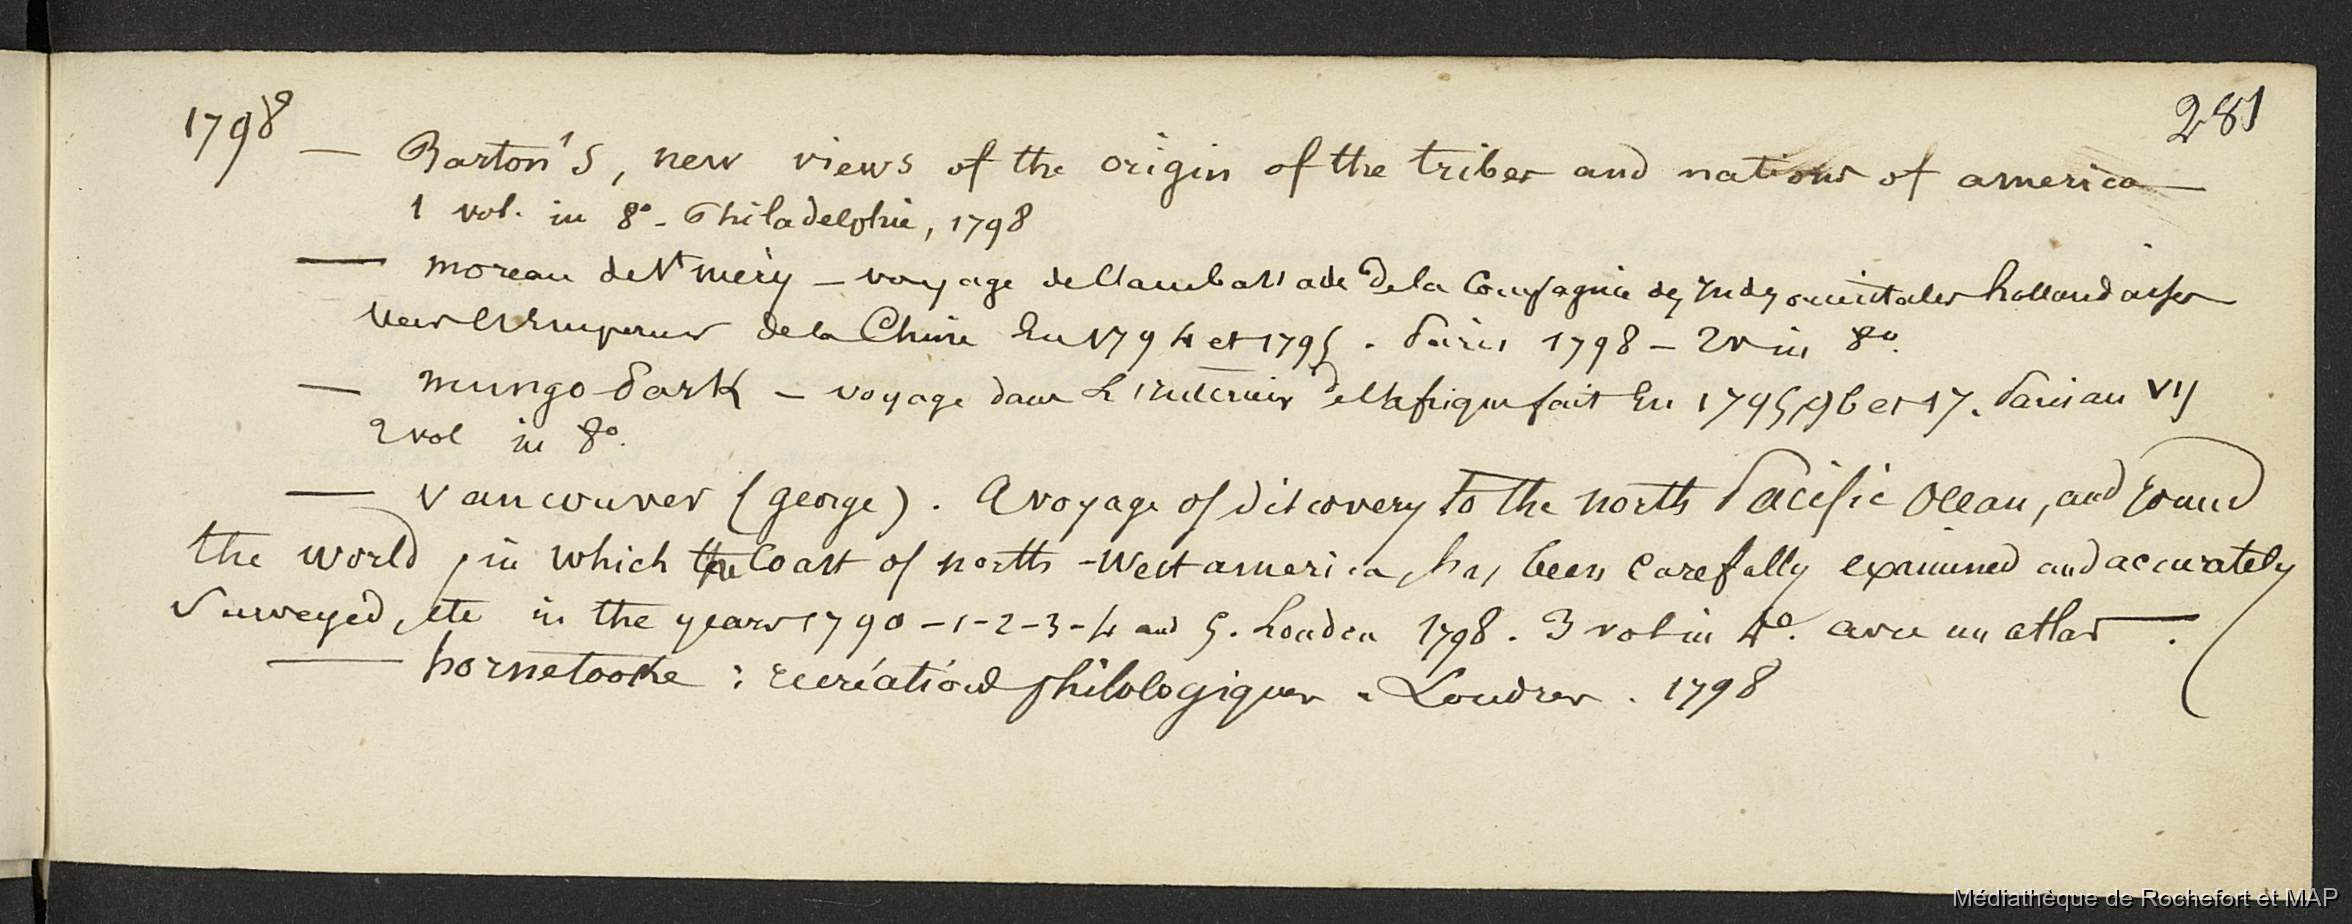 281
1798 — Barton's, new views of the origin of the tribes and nations of america —
1 vol. in 8° - Philadelphie, 1798
— moreau de St mery — voyage de l'ambassade de la Compagnie des Indes orientales hollandaises
vers l'Empereur de la Chine En 1794 et 1795 . Paris 1798 — 2 v in 8°.
— mungo-Park — voyage dans L'interieur de l'afrique fait En 1795, 96 et 97. Paris an VII
2 vol in 8°.
— Vancouver (george) . A voyage of discovery to the north Pacific Ocean, and round
the world, in which the Coast of north-West america, has been carefully examined and accurately
Surveyed, etc in the years 1790-1-2-3-4 and 5. London 1798. 3 vol in 4°. avec un atlas — .
— hornetooke : recréations philologiques . Londres . 1798
Médiathèque de Rochefort et MAP